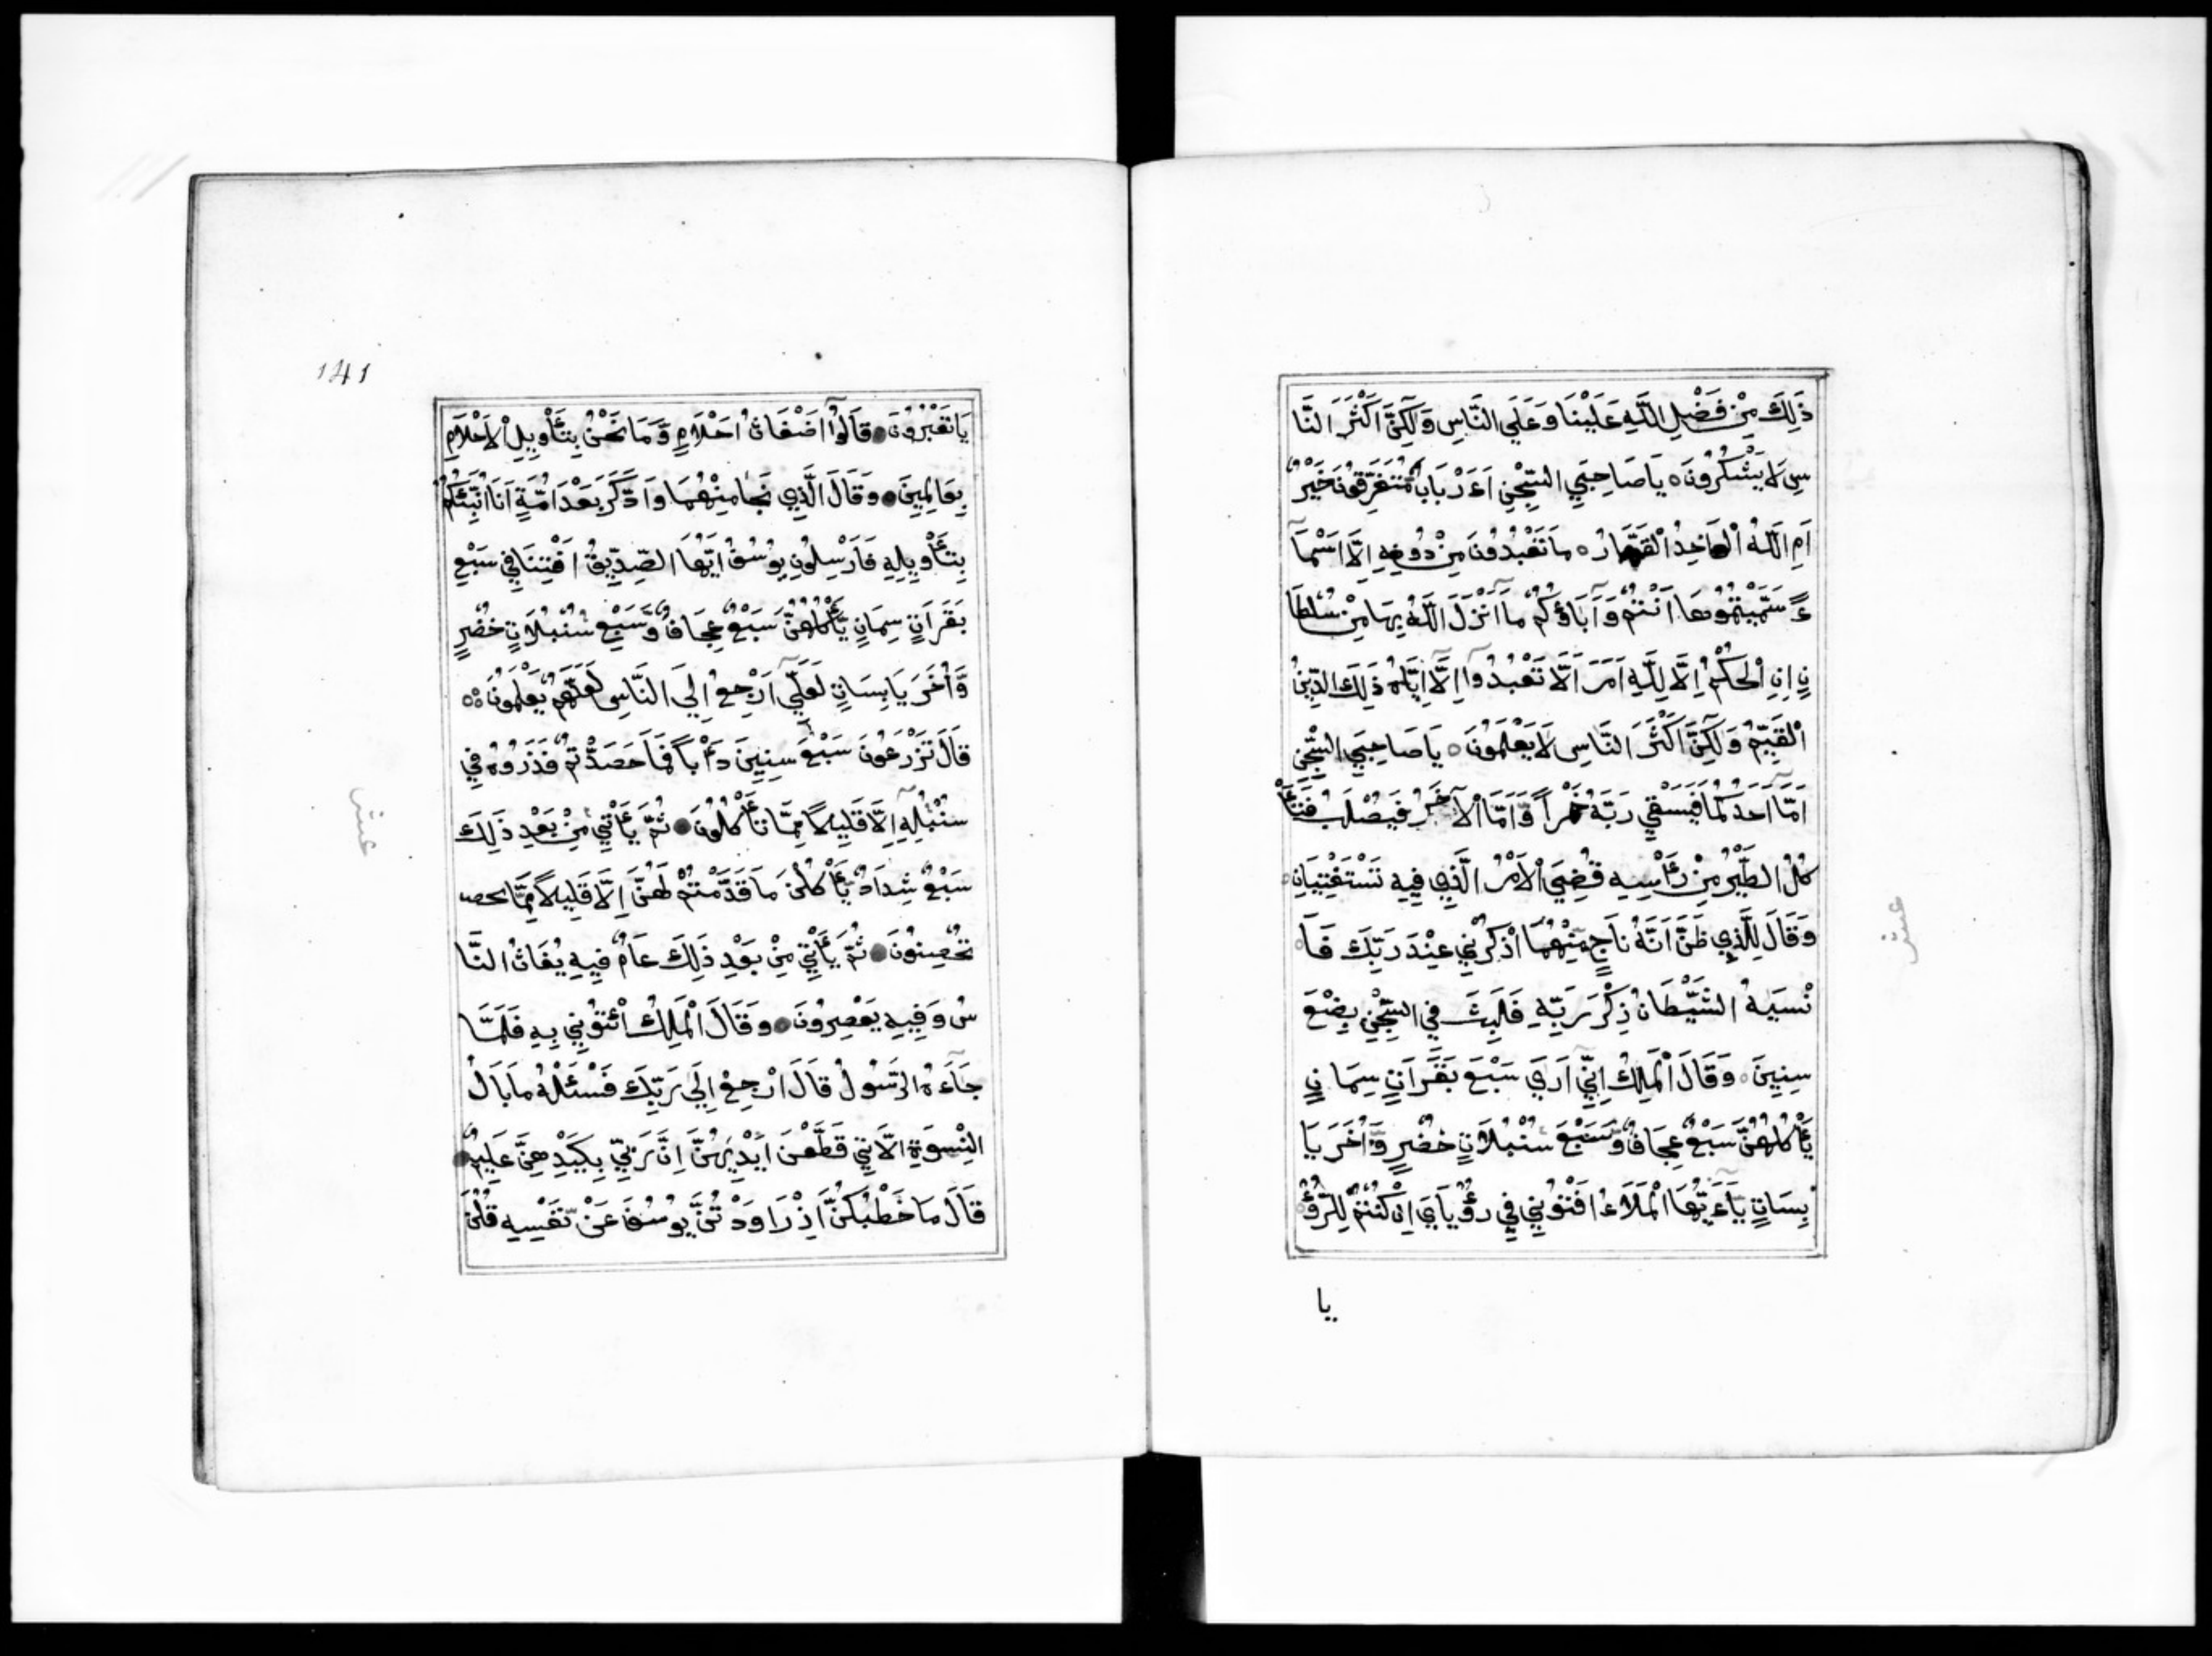 ذَلِكَ مِنْ فَضْلِ اللَّهِ عَلَيْنَا وَعَلَى النَّاسِ وَلَكِنَّ اَكْثَرَ النَّا
سِ لَا يَشْكُرُونَ ه يَا صَاحِبَيِ السِّجْنِ اَءَرْبَابٌ مُتَفَرِّقُونَ خَيْرٌ
اَمِ اللَّهُ الْوَاحِدُ الْقَهَّارُ ه مَا تَعْبُدُونَ مِنْ دُونِهِ اِلَّا اَسْمَآ
ءً سَمَّيْتُمُوهَا اَنْتُمْ وَآبَاؤُكُمْ مَا اَنْزَلَ اللَّهُ بِهَا مِنْ سُلْطَا
نٍ اِنِ الْحُكْمُ اِلَّا لِلَّهِ اَمَرَ اَلَّا تَعْبُدُوا اِلَّا اِيَّاهُ ذَلِكَ الدِّينُ
الْقَيِّمُ وَلَكِنَّ اَكْثَرَ النَّاسِ لَا يَعْلَمُونَ ه يَا صَاحِبَيِ السِّجْنِ
اَمَّا اَحَدُكُمَا فَيَسْقِي رَبَّهُ خَمْراً وَّاَمَّا الْآخَرُ فَيُصْلَبُ فَتَأْ
كُلُ الطَّيْرُ مِنْ رَأْسِهِ قُضِيَ الْاَمْرُ الَّذِي فِيهِ تَسْتَفْتِيَانِ ه
وَقَالَ لِلَّذِي ظَنَّ اَنَّهُ نَاجٍ مِنْهُمَا اذْكُرْنِي عِنْدَ رَبِّكَ فَاَ
نْسَيهُ الشَّيْطَانُ ذِكْرَ رَبِّهِ فَلَبِثَ فِي السِّجْنِ بِضْعَ
سِنِينَ ه وَقَالَ الْمَلِكُ اِنِّي اَرَى سَبْعَ بَقَرَاتٍ سِمَانٍ
يَأْكُلُهُنَّ سَبْعٌ عِجَافٌ وَّسَبْعَ سُنْبُلَاتٍ خُضْرٍ وَّاُخَرَ يَا
بِسَاتٍ يَآءَيُّهَا الْمَلَاءُ افْتُونِي فِي رُؤْيَايَ اِنْ كُنْتُمْ لِلرُّؤْ
يا
141
يَا تَعْبُرُونَ ه قَالُوآ اَضْغَاثُ اَحْلَامٍ وَّمَا نَحْنُ بِتَأْوِيلِ الْاَحْلَامِ
بِعَالِمِينَ ه وَقَالَ الَّذِي نَجَا مِنْهُمَا وَادَّكَرَ بَعْدَ اُمَّةٍ اَنَا اُنَبِّئُكُمْ
بِتَأْوِيلِهِ فَاَرْسِلُونِ يُوسُفُ اَيُّهَا الصِّدِّيقُ اَفْتِنَا فِي سَبْعِ
بَقَرَاتٍ سِمَانٍ يَّأْكُلُهُنَّ سَبْعٌ عِجَافٌ وَّسَبْعِ سُنْبُلَاتٍ خُضْرٍ
وَّاُخَرَ يَابِسَاتٍ لَعَلِّي اَرْجِعُ اِلَى النَّاسِ لَعَلَّهُمْ يَعْلَمُونَ ه
قَالَ تَزْرَعُونَ سَبْعَ سِنِينَ دَأْباً فَمَا حَصَدْتُمْ فَذَرُوهُ فِي
سُنْبُلِهِ اِلَّا قَلِيلاً مِمَّا تَأْكُلُونَ ه ثُمَّ يَأْتِي مِنْ بَعْدِ ذَلِكَ
سَبْعٌ شِدَادٌ يَأْكُلْنَ مَا قَدَّمْتُمْ لَهُنَّ اِلَّا قَلِيلاً مِمَّا تحص
تُحْصِنُونَ ه ثُمَّ يَأْتِي مِنْ بَعْدِ ذَلِكَ عَامٌ فِيهِ يُغَاثُ النَّا
سُ وَفِيهِ يَعْصِرُونَ ه وَقَالَ الْمَلِكُ ائْتُونِي بِهِ فَلَمَّا
جَآءَهُ الرَّسُولُ قَالَ ارْجِعْ اِلَى رَبِّكَ فَسْئَلْهُ مَا بَالُ
النِّسْوَةِ الَّاتِي قَطَّعْنَ اَيْدِيَهُنَّ اِنَّ رَبِّي بِكَيْدِهِنَّ عَلِيمٌ ه
قَالَ مَا خَطْبُكُنَّ اِذْ رَاوَدْتُنَّ يُوسُفَ عَنْ نَفْسِهِ قُلْنَ
عشر
عشر